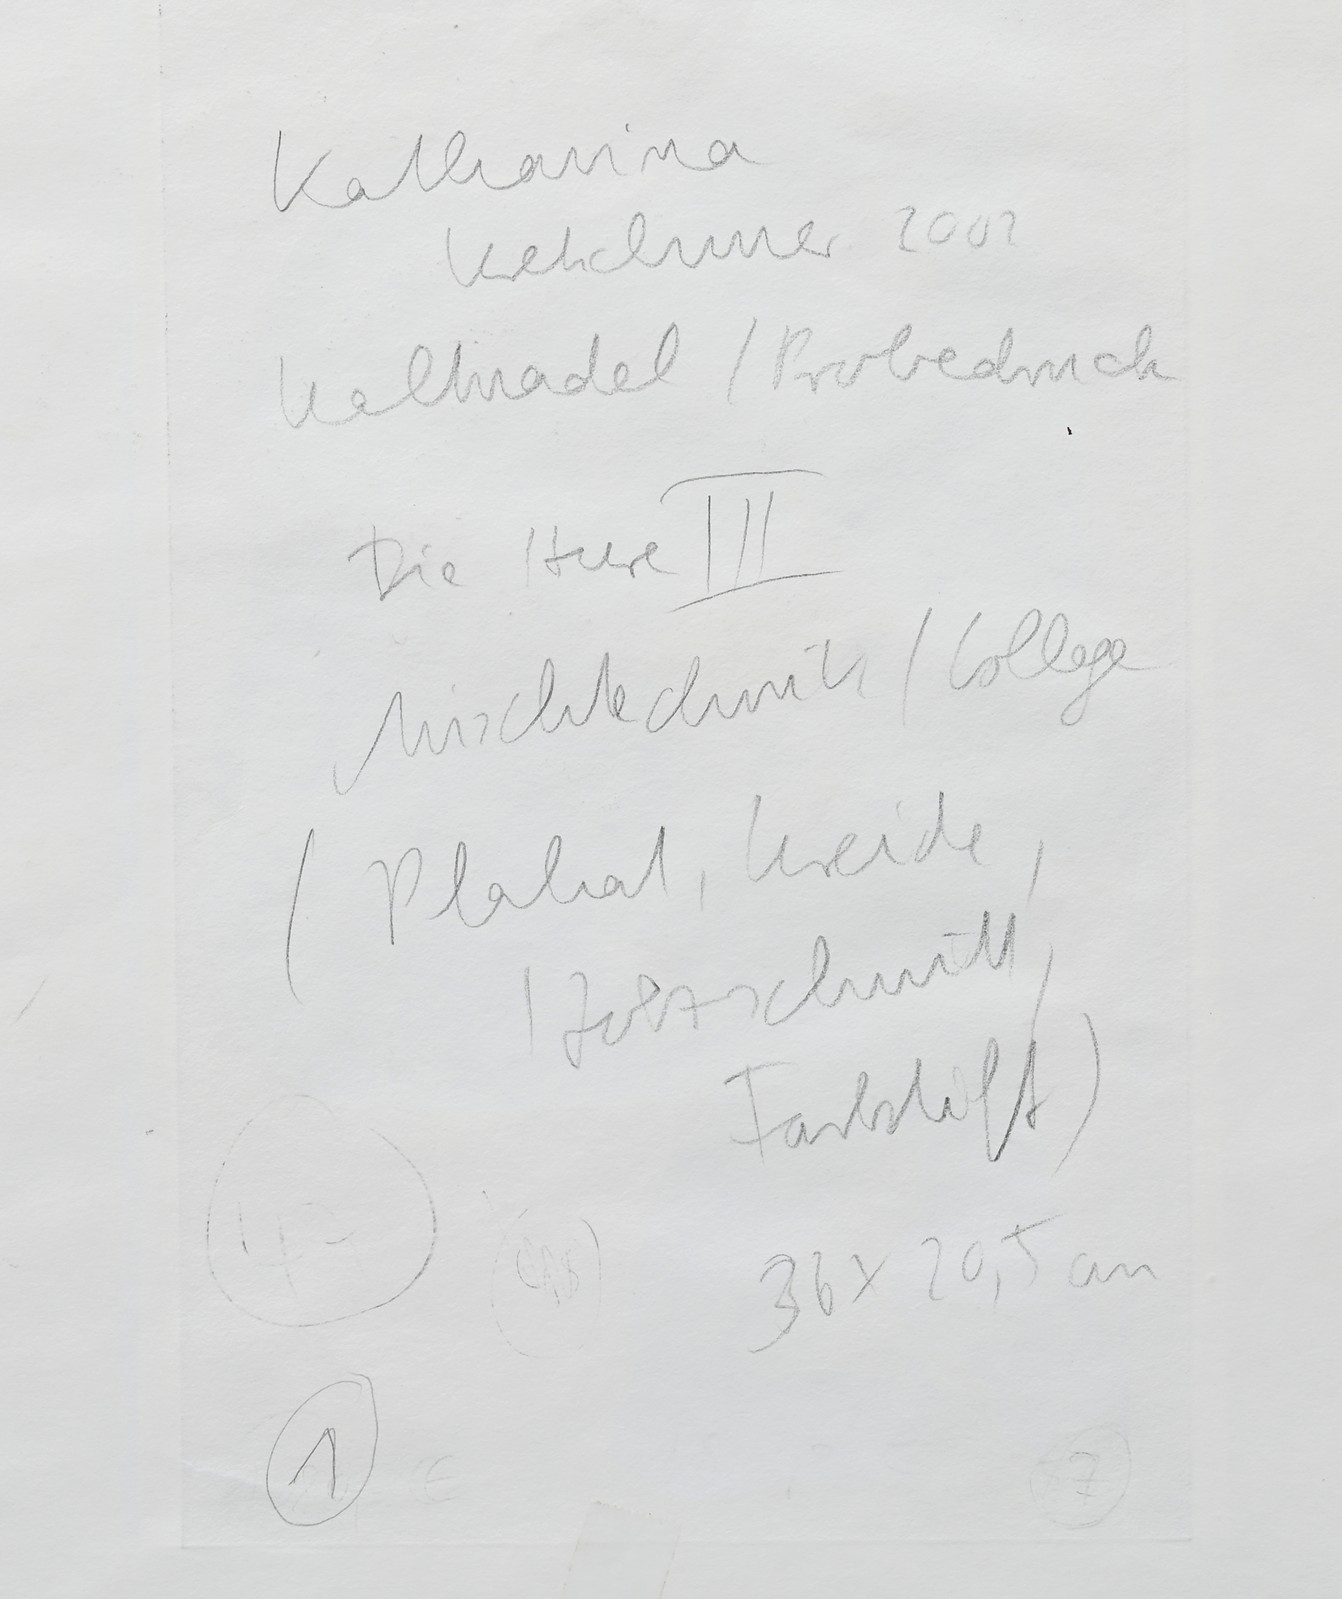 Katharina
Kretschmer 2002
Kaltnadel / Probedruck
Die Hure III
Mischtechnik / Collage
( Plakat, Kreide,
Holzschnitt,
Farbstift )
36 x 20,5 cm
1
7